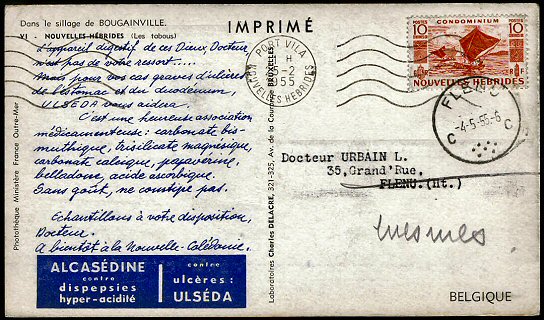 Dans le sillage de BOUGAINVILLE.
VI - NOUVELLES-HÉBRIDES (Les tabous)
L'appareil digestif de ces Dieux, Docteur
n'est pas de votre ressort....
Mais pour vos cas graves d'ulcères
de l'estomac et du duodénum,
ULSEDA vous aidera.
C'est une heureuse association
médicamenteuse: carbonate bis-
muthique, trisilicate magnésique,
carbonate calcique, papavérine,
belladone, acide ascorbique.
Sans goût, ne constipe pas.
Echantillons à votre disposition,
Docteur.
A bientôt à la Nouvelle-Calédonie.
ALCASÉDINE
contre
dispepsies
hyper-acidité
contre
ulcères:
ULSÉDA
Photothèque Ministère France Outre-Mer
Laboratoires Charles DELACRE, 321-325, Av. de la Couronne BRUXELLES
IMPRIMÉ
PORT VILA
H
5-2
1955
NOUVELLES HEBRIDES
POSTES CONDOMINIUM POSTES
10 10
RF
NOUVELLES HEBRIDES
FLENU
-4-5-55-6
C C
Docteur URBAIN L.
35, Grand'Rue,
FLENU.(Ht.)
BELGIQUE